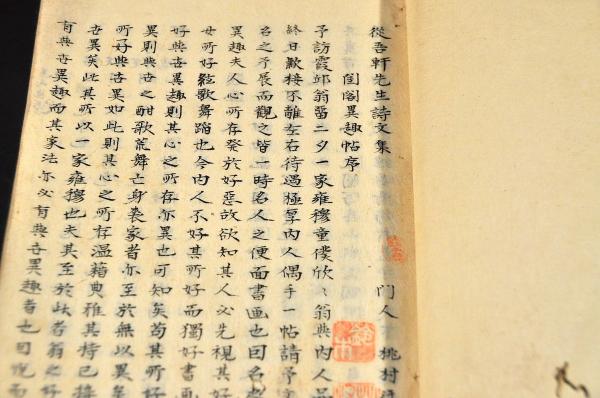 從吾軒先生詩文集 門人 桃村
閨閤異趣帖序
予訪霞邱翁畱二夕一家雍穆童僕欣〻翁與内人
終日歡接不離左右待遇極厚内人偶手一帖請予
名之予展而觀之皆一時名人之便面書画也曰名
異趣夫人心所存發於好惡故欲知其人必先視其好
女所好絃歌舞蹈也今内人不好其所好而獨好書画
好與世異趣則其心之所存亦異也可知矣苟其所好
異則與世之酣歌荒舞亡身喪家者亦至於無以異矣
所好與世異如此則其心之所存温藉典雅其待已接
世異矣此其所以一家雍穆也夫其至於此者翁之好
有與世異趣而其家法亦必有與世異趣者也曰説而